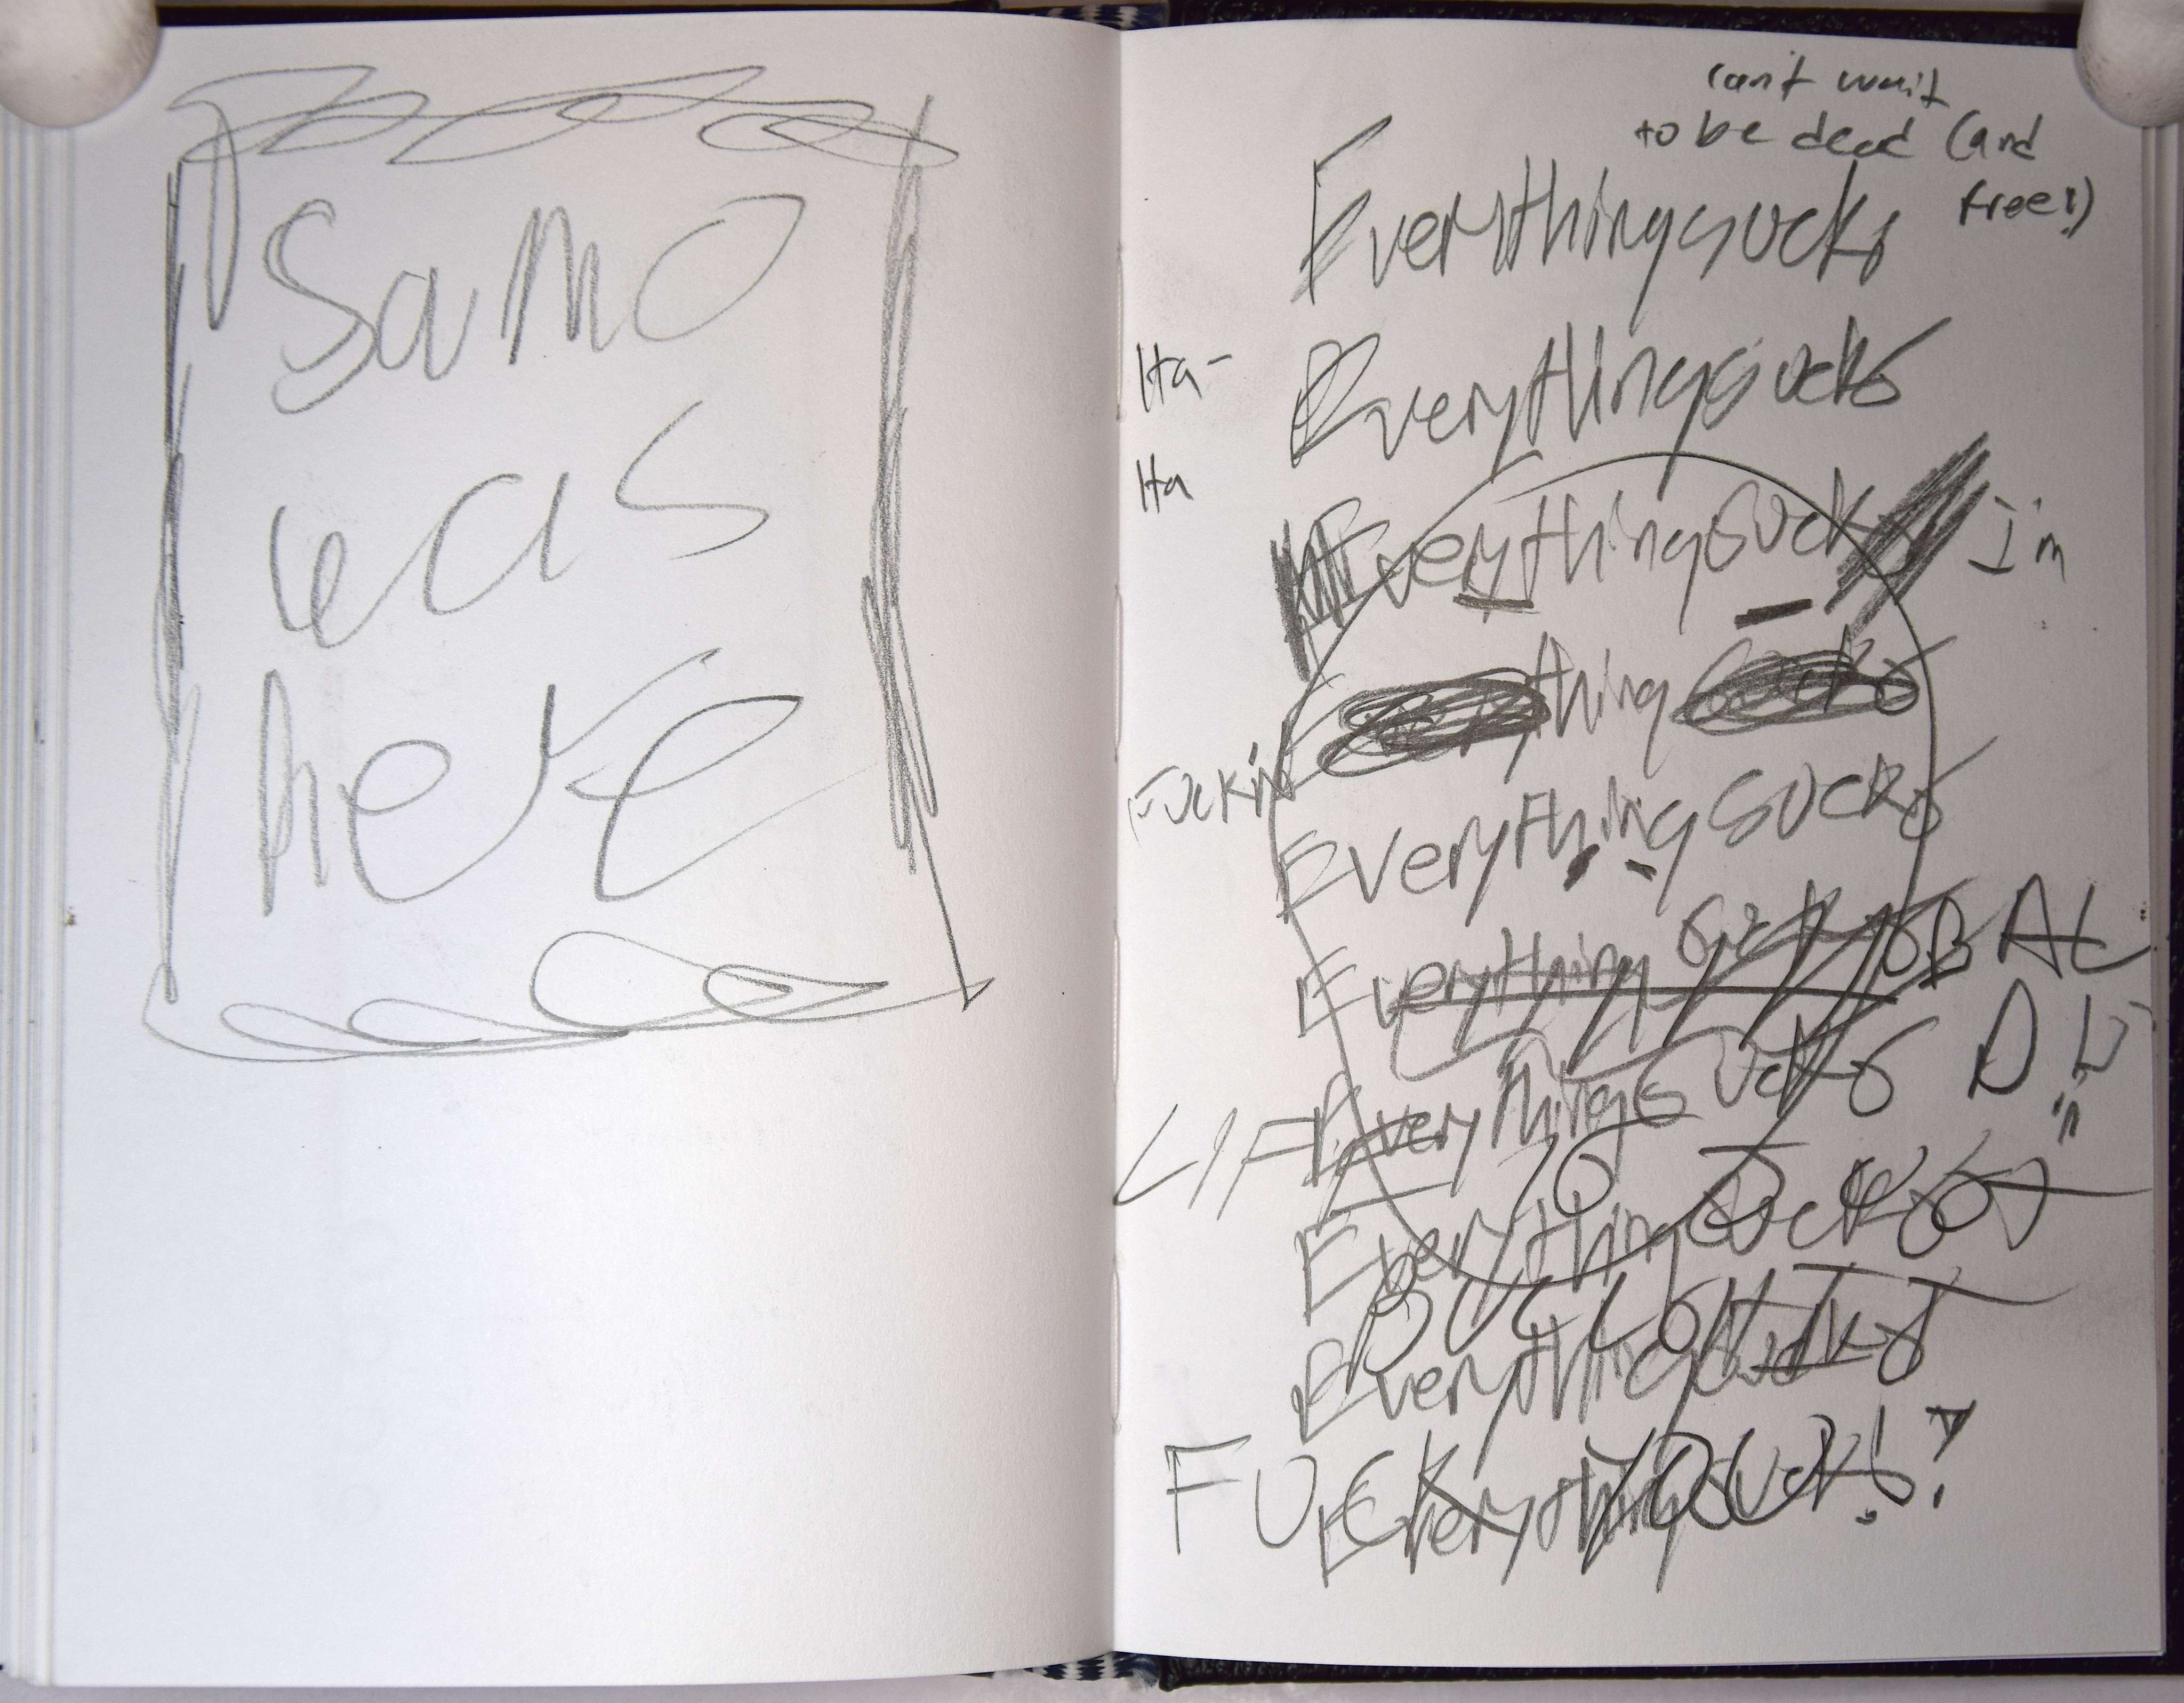 Samo
was
here
can't wait
to be dead (and
free!)
Everythingsucks
Ha-
Everythingsucks
Ha
Everythingsucks
I'm
Everything sucks
Fuckin
Everythingsucks
Everythingsucks
BAL
Everythingsucks
LIFE
Everythingsucks
BULLSHIT
Everythingsucks
FUCK YOU!?
Everythingsucks